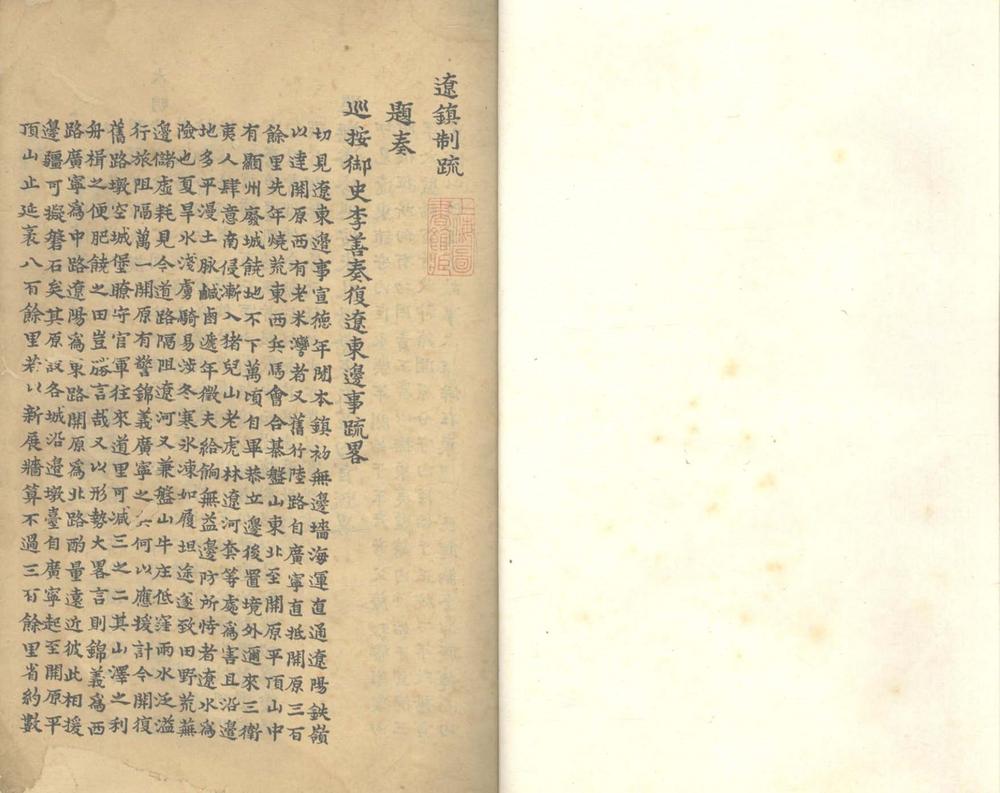 遼鎮制疏
題奏
巡按御史李善奏復遼東邊事疏畧
切見遼東邊事宣德年間本鎮初無邊墻海運直通遼陽鉄嶺
以達開原西有老米灣者又舊行陸路自廣寧直抵開原三百
餘里先年燒荒東西兵馬會合棊盤山東北至開原平頂山中
有顯州廢城饒地不下萬頃自畢恭立邊後置境外邇來三衛
夷人肆意南侵漸入猪兒山老虎林遼河套等處為害且沿邊
地多平漫土脉鹹鹵遞年徵夫給餉無益邊防所恃者遼水為
險也夏旱水淺虜騎易涉冬寒氷凍如履坦途遂致田野荒蕪
邊儲虛耗見今道路隔阻遼河又兼盤山牛庄低窪雨水泛溢
行旅阻隔萬一開原有警錦義廣寧之兵何以應援計令開復
舊路墩空城堡瞭守官軍往來道里可減三之二其山澤之利
舟楫之便肥饒之田豈勝言哉又以形勢大畧言則錦義為西
路廣寧為中路遼陽為東路開原為北路酌量遠近彼此相援
邊疆可擬磐石矣其原設各城沿邊墩臺自廣寧起至開原平
頂山止延袤八百餘里若以新展牆算不過三百餘里省約數